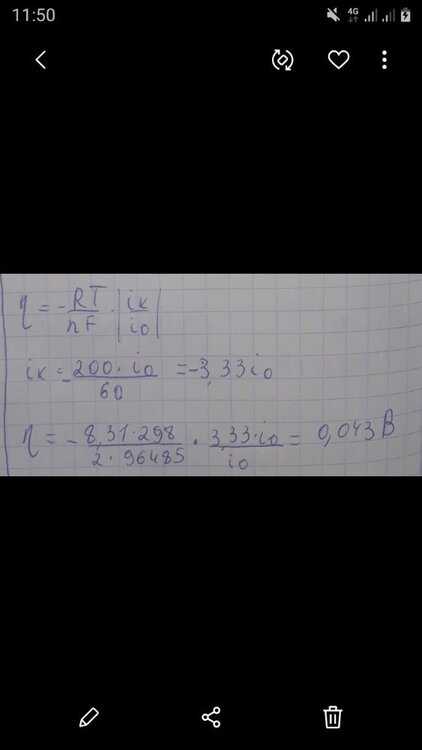 11:50
4G
η = - RT/nF · |iк/i0|
iк = - 200 · i0/60 = -3,33 i0
η = - 8,31 · 298/2 · 96485 · 3,33 · i0/i0 = 0,043 В